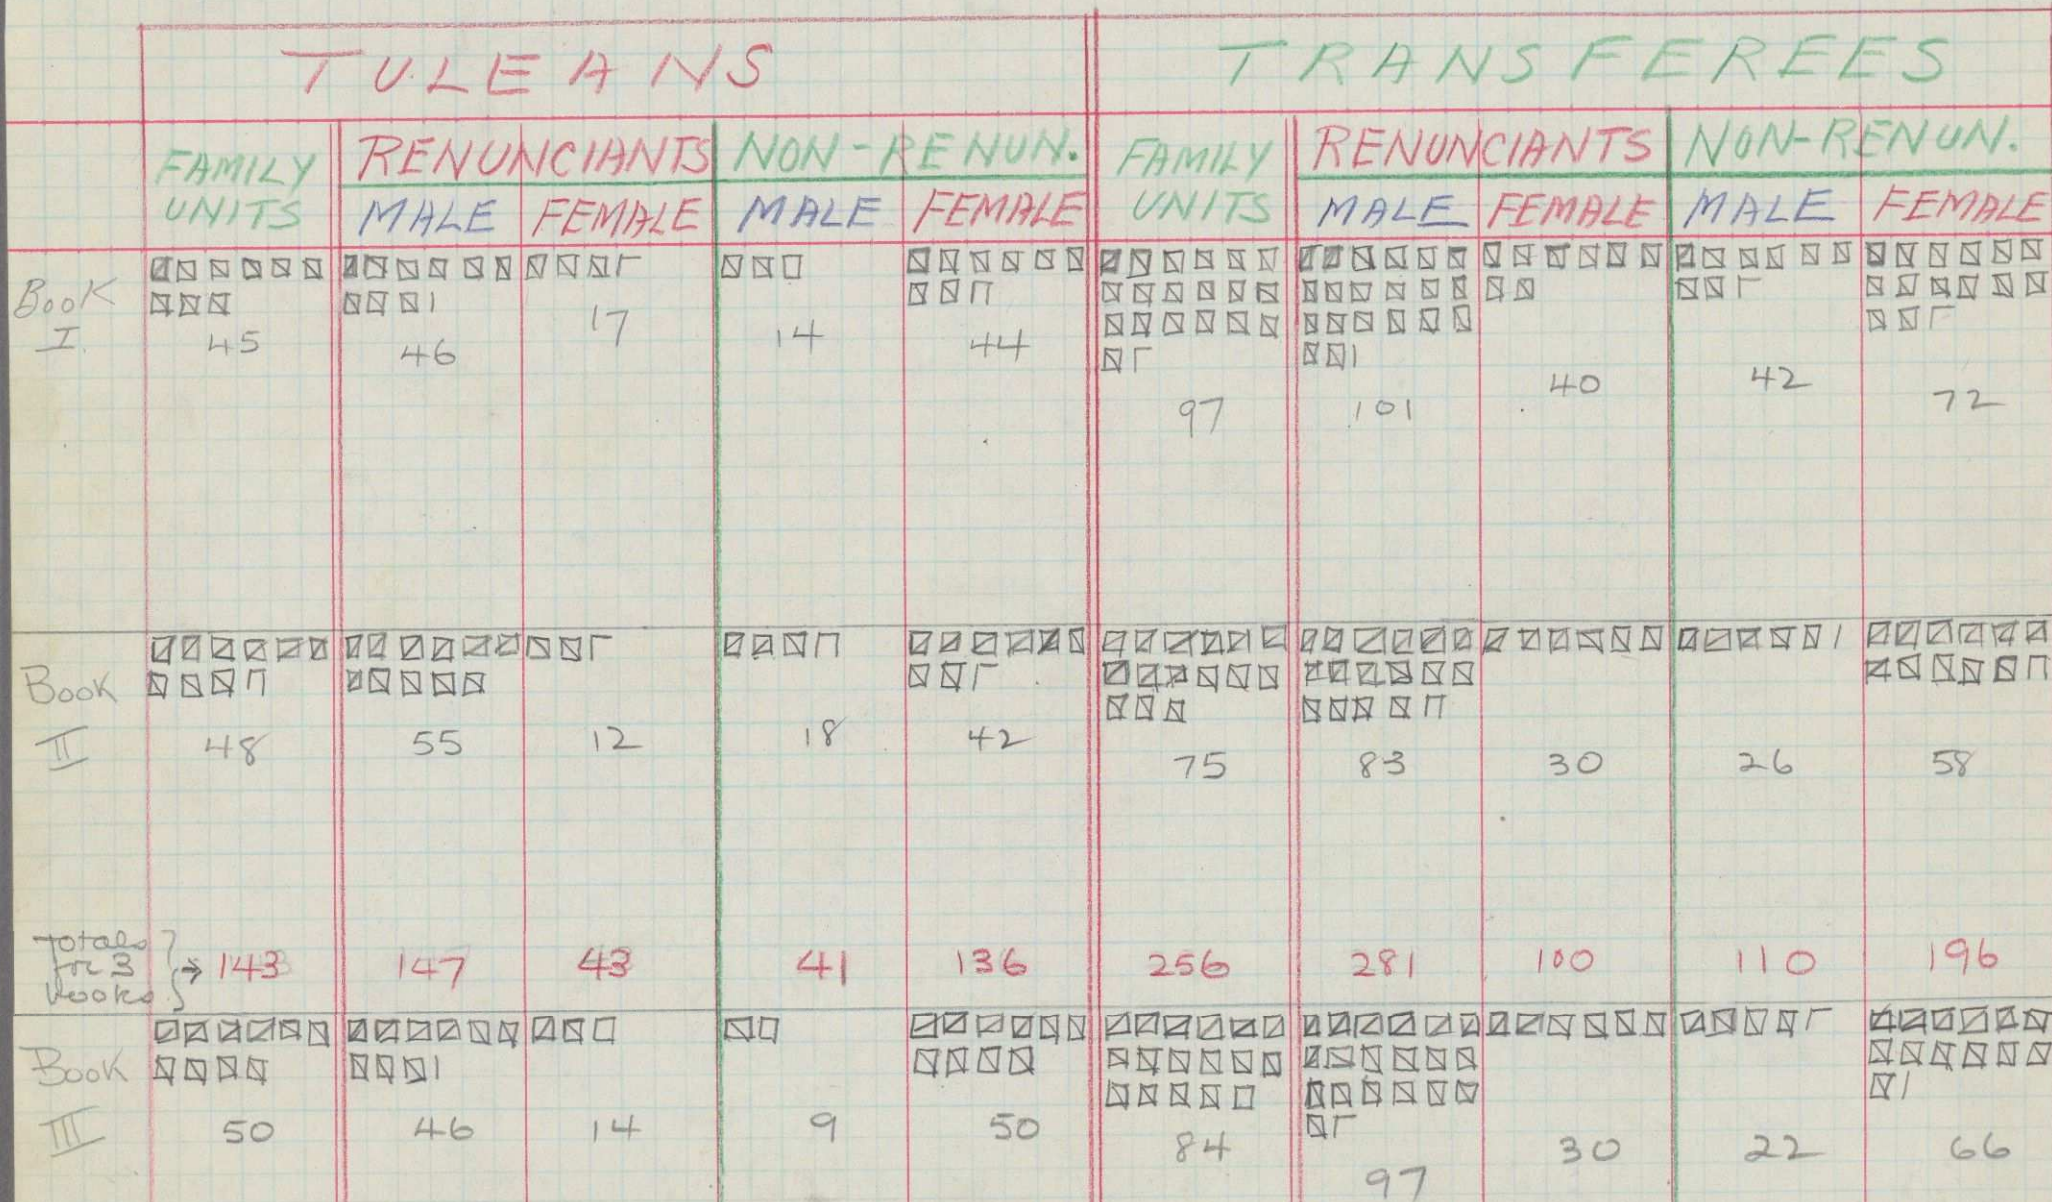 TULEANS TRANSFEREES
FAMILY UNITS RENUNCIANTS NON-RENUN. FAMILY UNITS RENUNCIANTS NON-RENUN.
MALE FEMALE MALE FEMALE MALE FEMALE MALE FEMALE
Book I 45 46 17 14 44 97 101 40 42 72
Book II 48 55 12 18 42 75 83 30 26 58
Totals for 3 books → 143 147 43 41 136 256 281 100 110 196
Book III 50 46 14 9 50 84 97 30 22 66